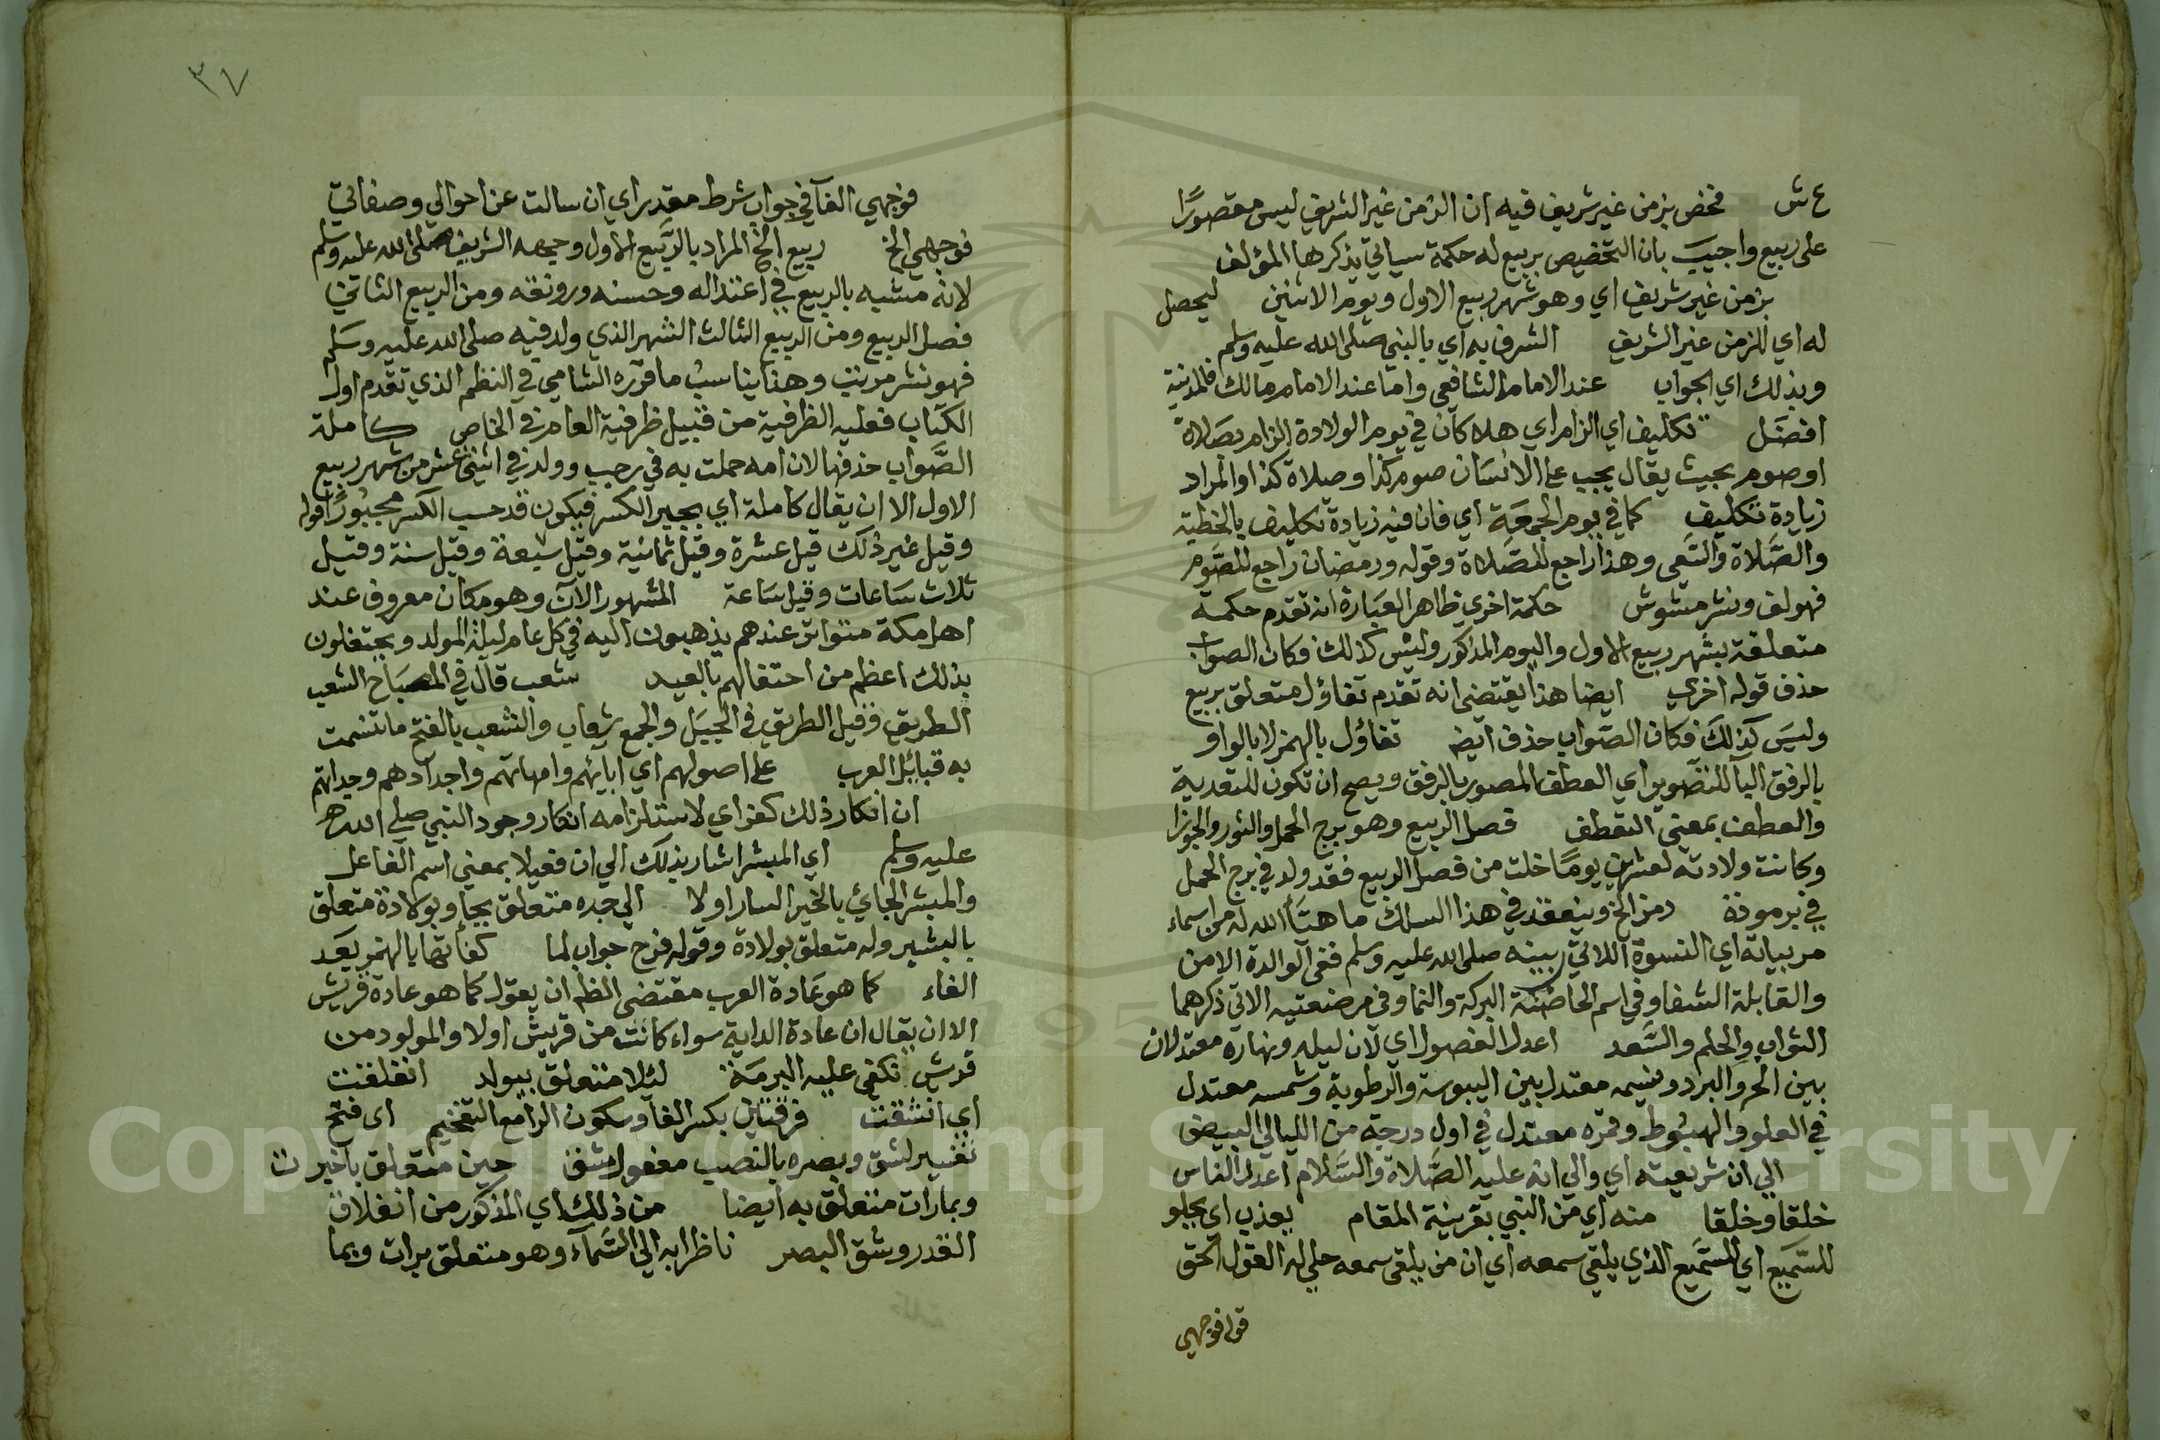 ع ش فخص بزمن غير شريف فيه ان الزمن غير الشريف ليس مقصورًا
على ربيع واجيب بان التخصيص بربيع له حكمة سياتي يذكرها المؤلف
بزمن غير شريف اي وهو شهر ربيع الاول ويوم الاثنين ليحصل
له اي للزمن غير الشريف الشرف به اي بالنبي صلى الله عليه وسلم
وبذلك اي الجواب عند الامام الشافعي واما عند الامام مالك فالمدينة
افضل تكليف اي الزام اي هلا كان في يوم الولادة الزام بصلاة
او صوم بحيث يقال يجب على الانسان صوم كذا وصلاة كذا والمراد
زيادة تكليف كما في يوم الجمعة اي فان فيه زيادة تكليف بالخطبة
والصلاة والسعي وهذا راجع للصلاة وقوله ورمضان راجع للصوم
فهو لف ونشر مشوش حكمة اخري ظاهر العبارة انه تقدم حكمة
متعلقة بشهر ربيع الاول واليوم المذكور وليس كذلك فكان الصواب
حذف قوله اخري ايضا هذا يقتضي انه تقدم تفاؤل متعلق بربيع
وليس كذلك فكان الصواب حذف ايضا تفاؤل بالهمز لا بالواو
بالرفق البآ للتصوير اي العطف المصور بالرفق ويصح ان تكون للتعدية
والعطف بمعني التعطف فصل الربيع وهو برج الحمل والثور والجوزا
وكانت ولادته لعشرين يومًا خلت من فصل الربيع فقد ولد في برج الحمل
في برمودة رمز الخ وينعقد في هذا السلك ما هيَّأ الله له من اسماء
مربياته اي النسوة اللاتي ربينه صلى الله عليه وسلم ففي الوالدة الامن
والقابلة الشفا وفي اسم الحاضنة البركة والنما وفي مرضعتيه الاتي ذكرهما
الثواب والحلم والسعد اعدل الفصول اي لان ليله ونهاره معتدلان
بين الحر والبرد ونسيمه معتدل بين اليبوسة والرطوبة وشمسه معتدل
في العلو والهبوط وقمره معتدل في اول درجة من الليالي البيض
الي ان شريعته اي والي انه عليه الصلاة والسلام اعدل الناس
خلقا وخلقا منه اي من النبي بقرينة المقام يعذب اي يحلو
للسميع اي للسميع الذي يلقي سمعه اي ان من يلقي سمعه حلي له القول الحق
قوله فوجهي
٣٧
فوجهي الفآ في جواب شرط مقدر اي ان سالت عن احوالي وصفاتي
فوجهي الخ ربيع الخ المراد بالربيع الاول وجهه الشريف صلى الله عليه وسلم
لانه مشبه بالربيع في اعتداله وحسنه ورونقه ومن الربيع الثاني
فصل الربيع ومن الربيع الثالث الشهر الذي ولد فيه صلى الله عليه وسلم
فهو نشر مرتب وهذا يناسب ما قرره الشامي في النظم الذي تقدم اول
الكتاب فعليه الظرفية من قبيل ظرفية العام في الخاص كاملة
الصواب حذفها لان امه حملت به في رجب وولد في اثني عشر من شهر ربيع
الاول الا ان يقال كاملة اي بجبر الكسر فيكون قد حسب الكسر مجبورًا قوله
وقيل غير ذلك قيل عشرة وقيل ثمانية وقيل سبعة وقيل ستة وقيل
ثلاث ساعات وقيل ساعة المشهور الآن وهو مكان معروف عند
اهل مكة متواتر عندهم يذهبون اليه في كل عام ليلة المولد ويحتفلون
بذلك اعظم من احتفالهم بالعيد شعب قال في المصباح الشعب
الطريق وقيل الطريق في الجبل والجمع شعاب والشعب بالفتح ما تشعبت
به قبائل العرب على اصولهم اي ابائهم وامهاتهم واجدادهم وجداتهم
ان انكار ذلك كفر اي لاستلزامه انكار وجود النبي صلى الله
عليه وسلم اي المبشر اشار بذلك الي ان فعيلا بمعني اسم الفاعل
والمبشر الجائي بالخير السار اولا الي جده متعلق بجا وبولادة متعلق
بالبشير وله متعلق بولادة وقوله فرح جواب لما كفاتها بالهمز بعد
الفاء كما هو عادة العرب مقتضى الظم ان يقول كما هو عادة قريش
الا ان يقال ان عادة الداية سواء كانت من قريش اولا والمولود من
قرش تكفي عليه البرمة لئلا متعلق بيولد انفلقت
اي انشقت فرقتين بكسر الفآ وسكون الرا مع التفخيم اي فتح
تفسير لشق وبصره بالنصب مفعول شق حين متعلق باخبرت
وبمارات متعلق به ايضا من ذلك اي المذكور من انفلاق
القدر وشق البصر ناظرا به الي السمآء وهو متعلق برات وبما